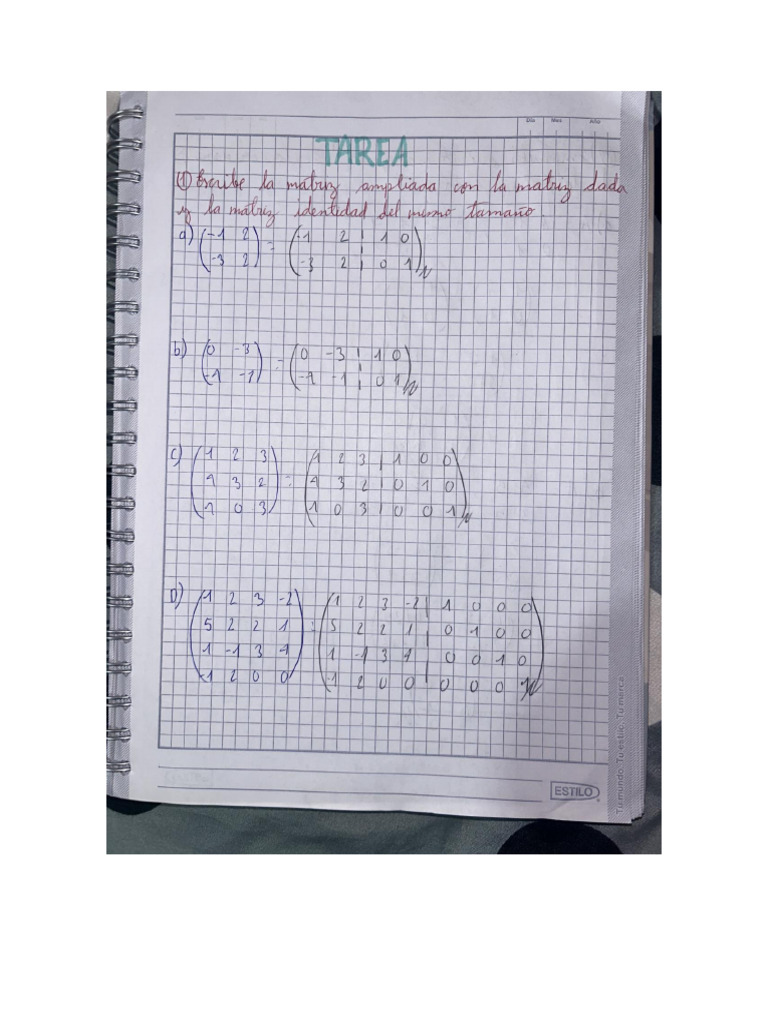 Día Mes Año
TAREA
1) Escribe la matriz ampliada con la matriz dada
y la matriz identidad del mismo tamaño.
a) (-1 2 = (-1 2 | 1 0
-3 2) -3 2 | 0 1)
b) (0 -3 = (0 -3 | 1 0
-1 -1) -1 -1 | 0 1)
c) (1 2 3 (1 2 3 | 1 0 0
1 3 2 = 1 3 2 | 0 1 0
1 0 3) 1 0 3 | 0 0 1)
D) (1 2 3 -2 (1 2 3 -2 | 1 0 0 0
5 2 2 1 = 5 2 2 1 | 0 1 0 0
1 -1 3 1 1 -1 3 1 | 0 0 1 0
-1 2 0 0) -1 2 0 0 | 0 0 0 1)
ESTILO
Tu mundo. Tu estilo. Tu marca